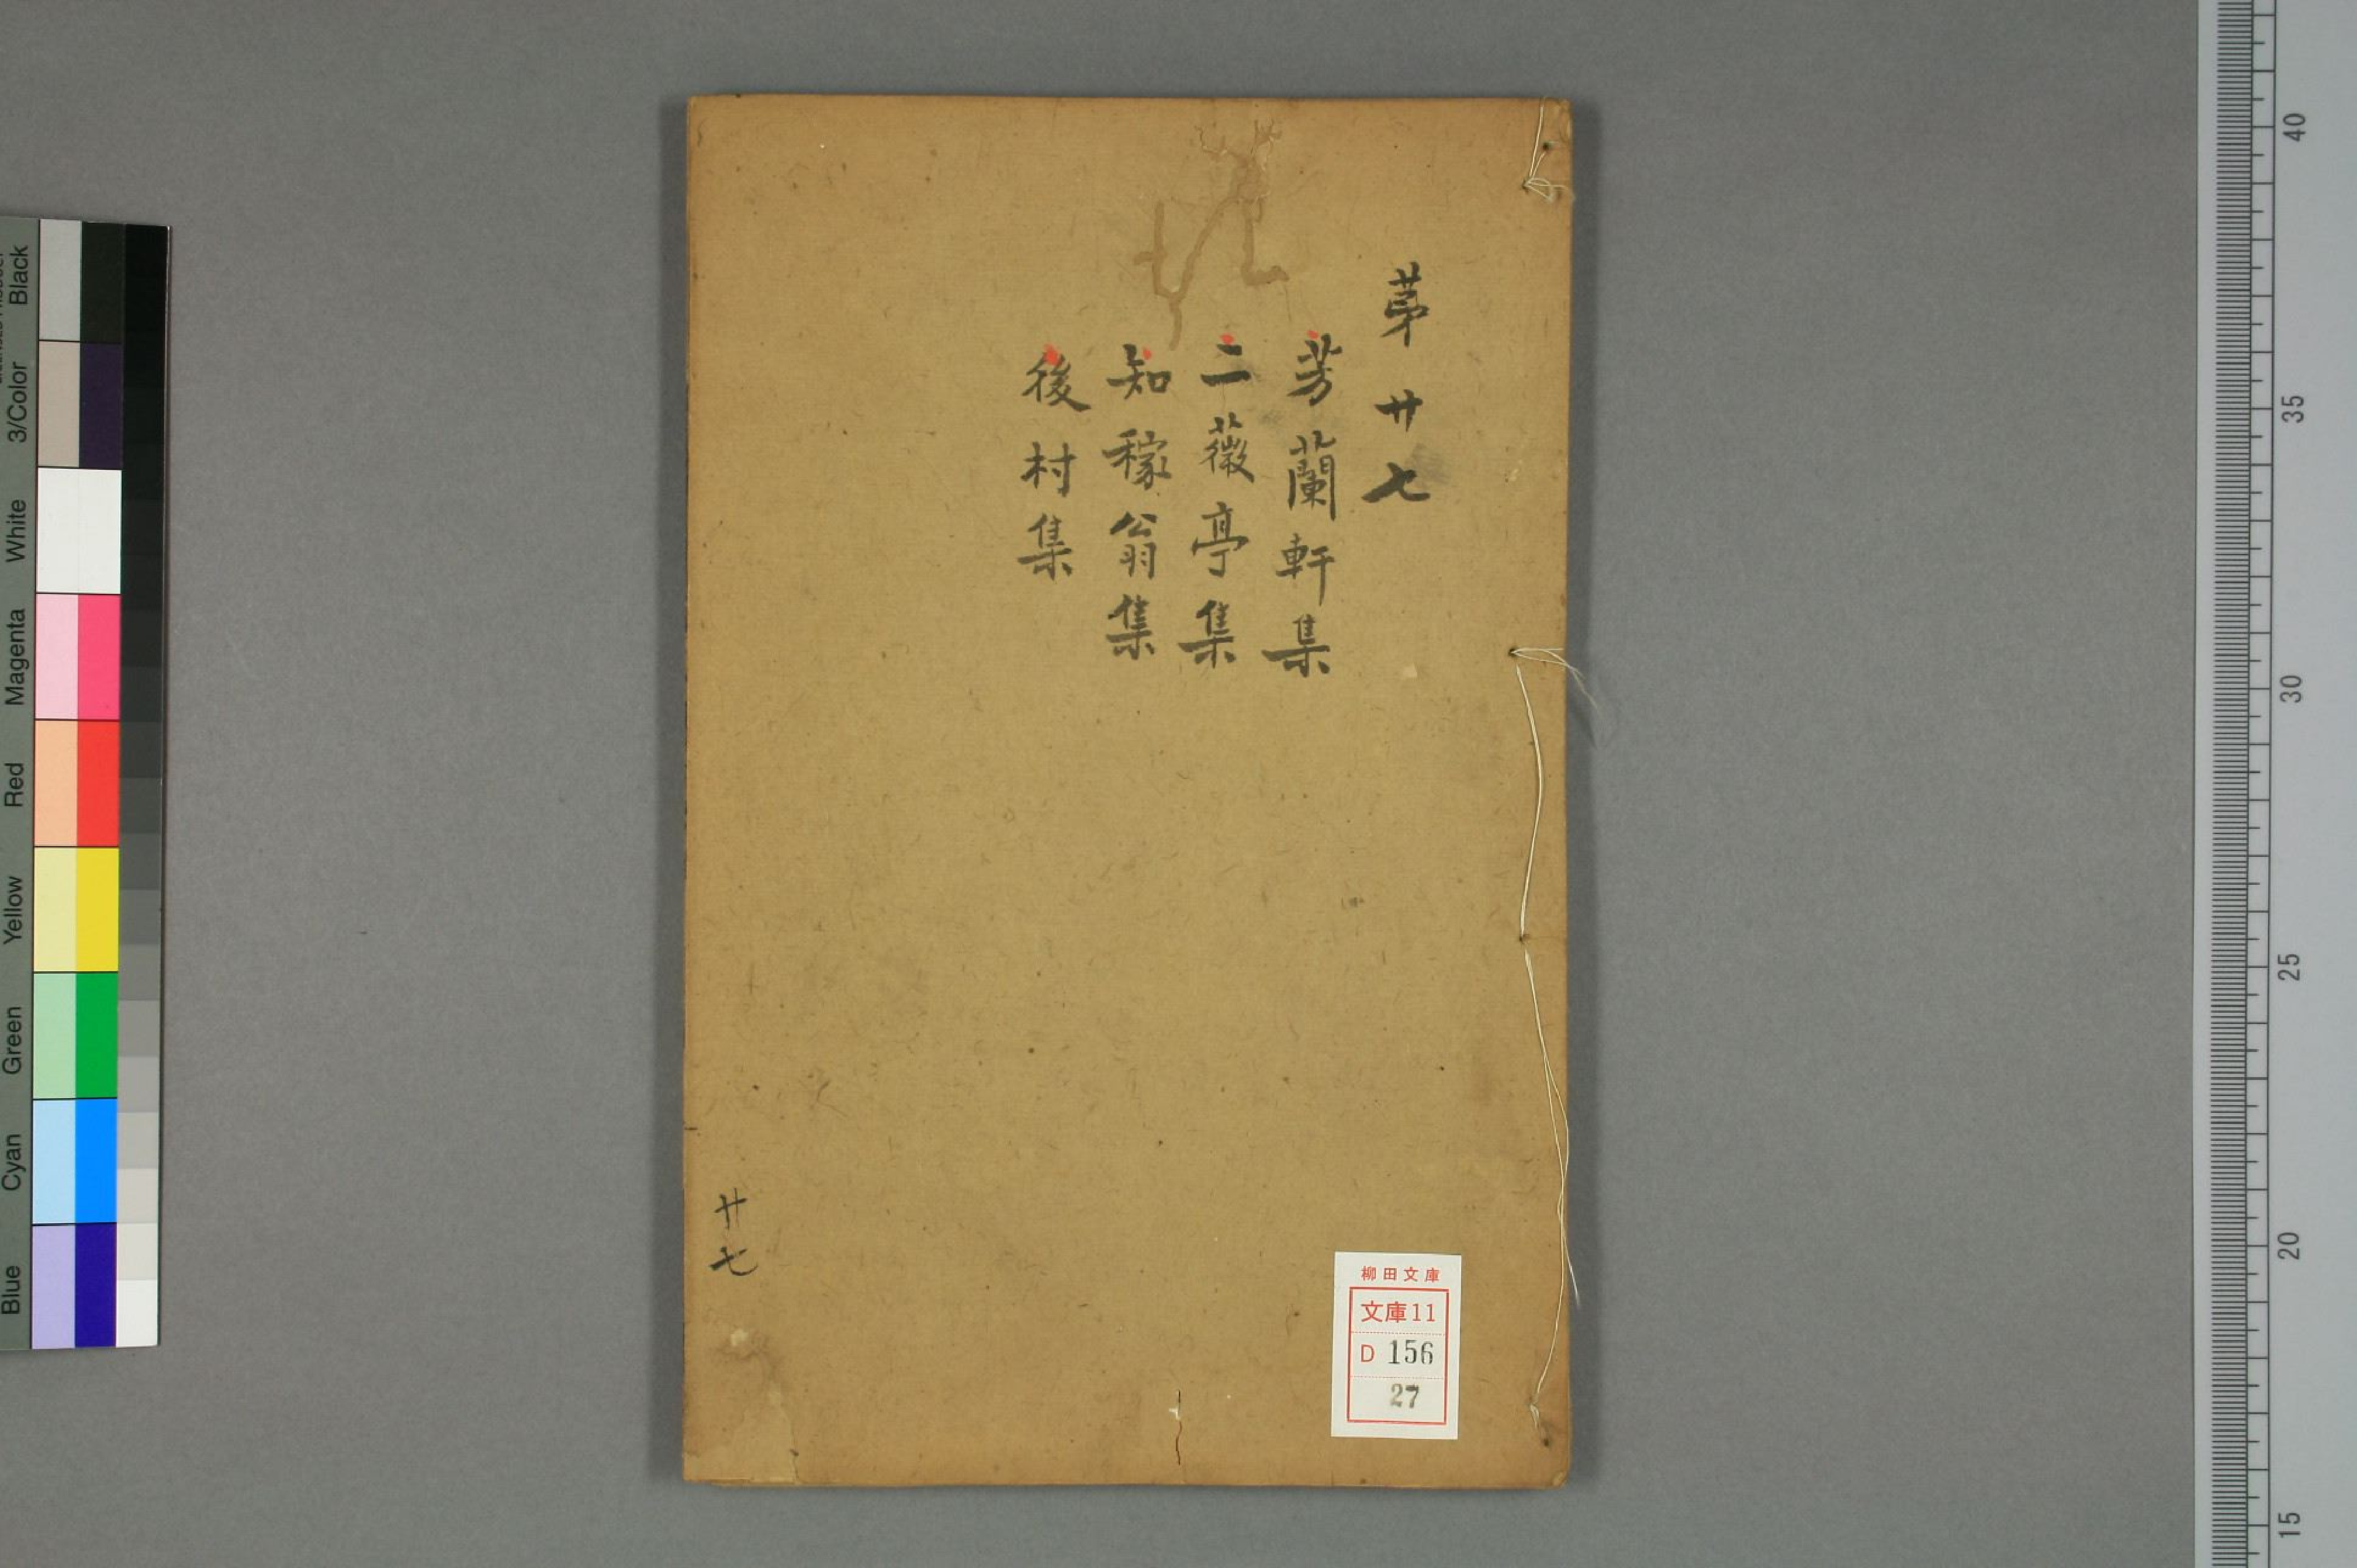 第廿七
芳蘭軒集
二薇亭集
知稼翁集
後村集
廿七
柳田文庫
文庫11
D 156
27
Black
3/Color
White
Magenta
Red
Yellow
Green
Cyan
Blue
40
35
30
25
20
15